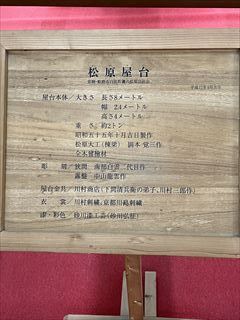 松原屋台
屋台本体/大きさ 長さ5.8メートル
幅 2.4メートル
高さ4メートル
重さ 約2トン
昭和五十五年十月吉日製作
松原大工(棟梁)
全本檜材
彫 刻/狭間 南部白雲二代目作
露盤 中山龍雲作
屋台金具/川村商店(下間清兵衛の弟子、川村二郎作)
衣 裳/川村刺繍、京都川嶋刺繍
漆・彩色/砂川漆工芸(砂川弘征)